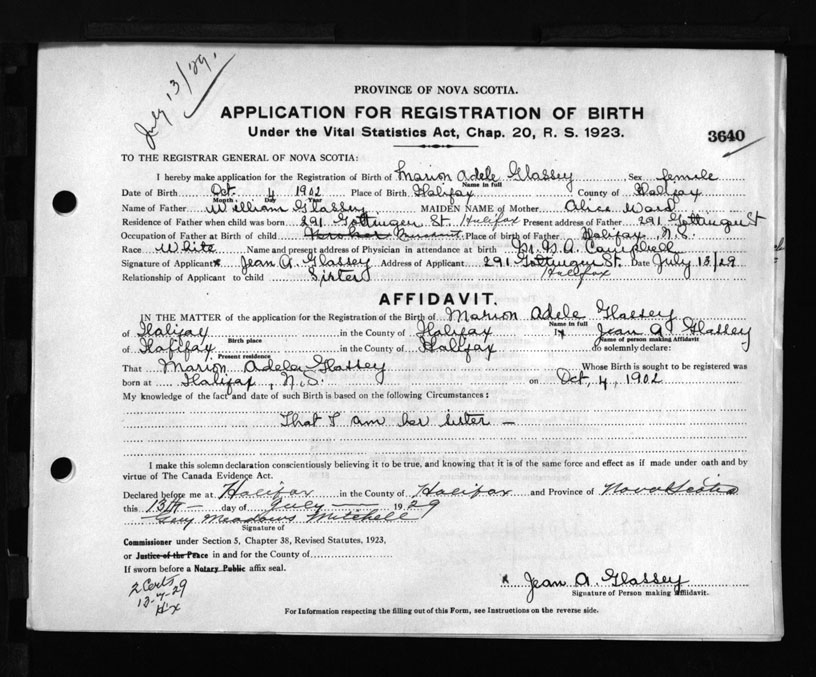 July 13/29.
PROVINCE OF NOVA SCOTIA.
APPLICATION FOR REGISTRATION OF BIRTH
Under the Vital Statistics Act, Chap. 20, R. S. 1923.
3640
TO THE REGISTRAR GENERAL OF NOVA SCOTIA:
I hereby make application for the Registration of Birth of Marion Adele Glassey Sex female
Name in full
Date of Birth Oct. 4 1902 Place of Birth Halifax County of Halifax
Month Day Year
Name of Father William Glassey MAIDEN NAME of Mother Alice Ward
Residence of Father when child was born 291 Gottingen St. Halifax Present address of Father 291 Gottingen St
Occupation of Father at Birth of child Place of birth of Father Halifax, N.S.
Race White Name and present address of Physician in attendance at birth
Signature of Applicant Jean A. Glassey Address of Applicant 291 Gottingen St. Date July 13/29
Halifax
Relationship of Applicant to child Sister
AFFIDAVIT.
IN THE MATTER of the application for the Registration of the Birth of Marion Adele Glassey
Name in full
of Halifax in the County of Halifax I, Jean A. Glassey
Birth place Name of person making Affidavit
of Halifax in the County of Halifax do solemnly declare:
Present residence
That Marion Adele Glassey Whose Birth is sought to be registered was
born at Halifax, N.S. on Oct, 4, 1902
My knowledge of the fact and date of such Birth is based on the following Circumstances:
That I am her sister —
I make this solemn declaration conscientiously believing it to be true, and knowing that it is of the same force and effect as if made under oath and by
virtue of The Canada Evidence Act.
Declared before me at Halifax in the County of Halifax and Province of Nova Scotia
this 13th day of July 1929
Guy Meadows Mitchell
Signature of
Commissioner under Section 5, Chapter 38, Revised Statutes, 1923,
or Justice of the Peace in and for the County of
If sworn before a Notary Public affix seal.
2 Certs
13-7-29
H'x
x Jean A. Glassey
Signature of Person making Affidavit.
For Information respecting the filling out of this Form, see Instructions on the reverse side.